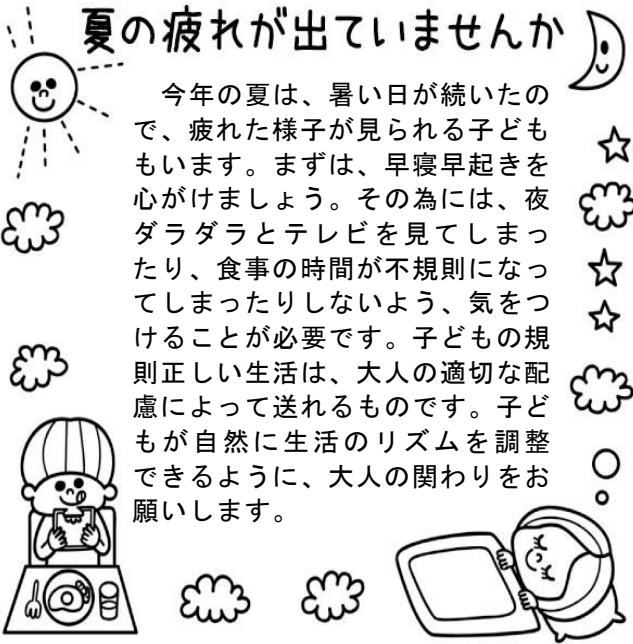 夏の疲れが出ていませんか
　今年の夏は、暑い日が続いたの
で、疲れた様子が見られる子ども
もいます。まずは、早寝早起きを
心がけましょう。その為には、夜
ダラダラとテレビを見てしまっ
たり、食事の時間が不規則になっ
てしまったりしないよう、気をつ
けることが必要です。子どもの規
則正しい生活は、大人の適切な配
慮によって送れるものです。子ど
もが自然に生活のリズムを調整
できるように、大人の関わりをお
願いします。